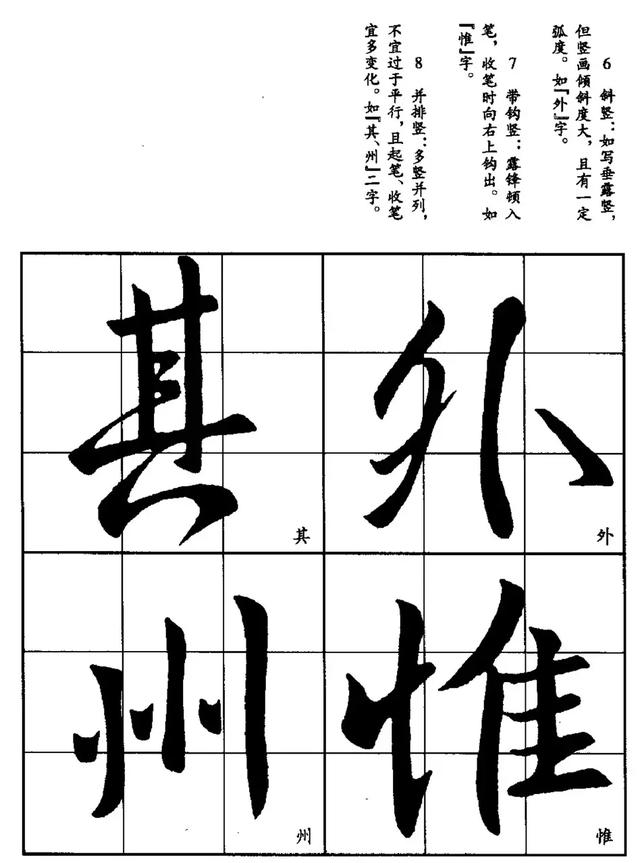 6 斜竖：如写垂露竖，
但竖画倾斜度大，且有一定
弧度。如『外』字。
7 带钩竖：露锋顿入
笔，收笔时向右上钩出。如
『惟』字。
8 并排竖：多竖并列，
不宜过于平行，且起笔、收笔
宜多变化。如『其、州』二字。
外
外
惟
惟
其
其
州
州